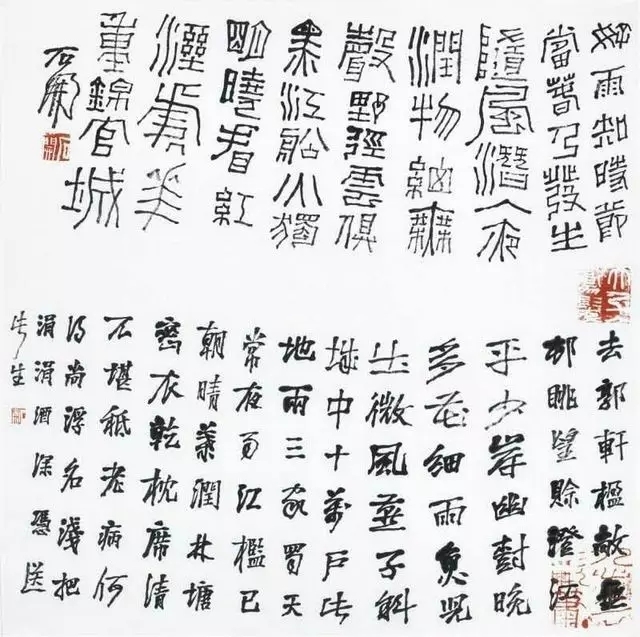 好雨知時節
當春乃發生
隨風潛入夜
潤物細無
聲野徑雲俱
黑江船火獨
明曉看紅
溼處花
重錦官城
石開
去郭軒楹敞無
邨眺望賒澄江
平少岸幽樹晚
多花細雨魚兒
出微風燕子斜
城中十萬戶此
地兩三家蜀天
常夜雨江檻已
朝晴葉潤林塘
密衣乾枕席清
不堪秪老病何
得尚浮名淺把
涓涓酒深憑送
此生